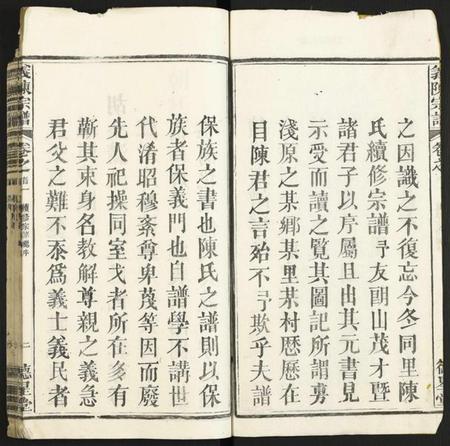 義陳宗譜
卷之
之因識之不復忘今冬同里陳
氏續修宗譜予友朗山茂才暨
諸君子以序屬且出其元書見
示受而讀之覽其圖記所謂剪
淺原之某鄉某里某村歷歷在
目陳君之言殆不予欺乎夫譜
保族之書也陳氏之譜則以保
族者保義門也自譜學不講世
代淆昭穆紊尊卑蔑等因而廢
先人祀操同室戈者所在多有
蘄其束身名教解尊親之義急
君父之難不忝為義士義民者
義陳宗譜
卷之首
二
德星堂